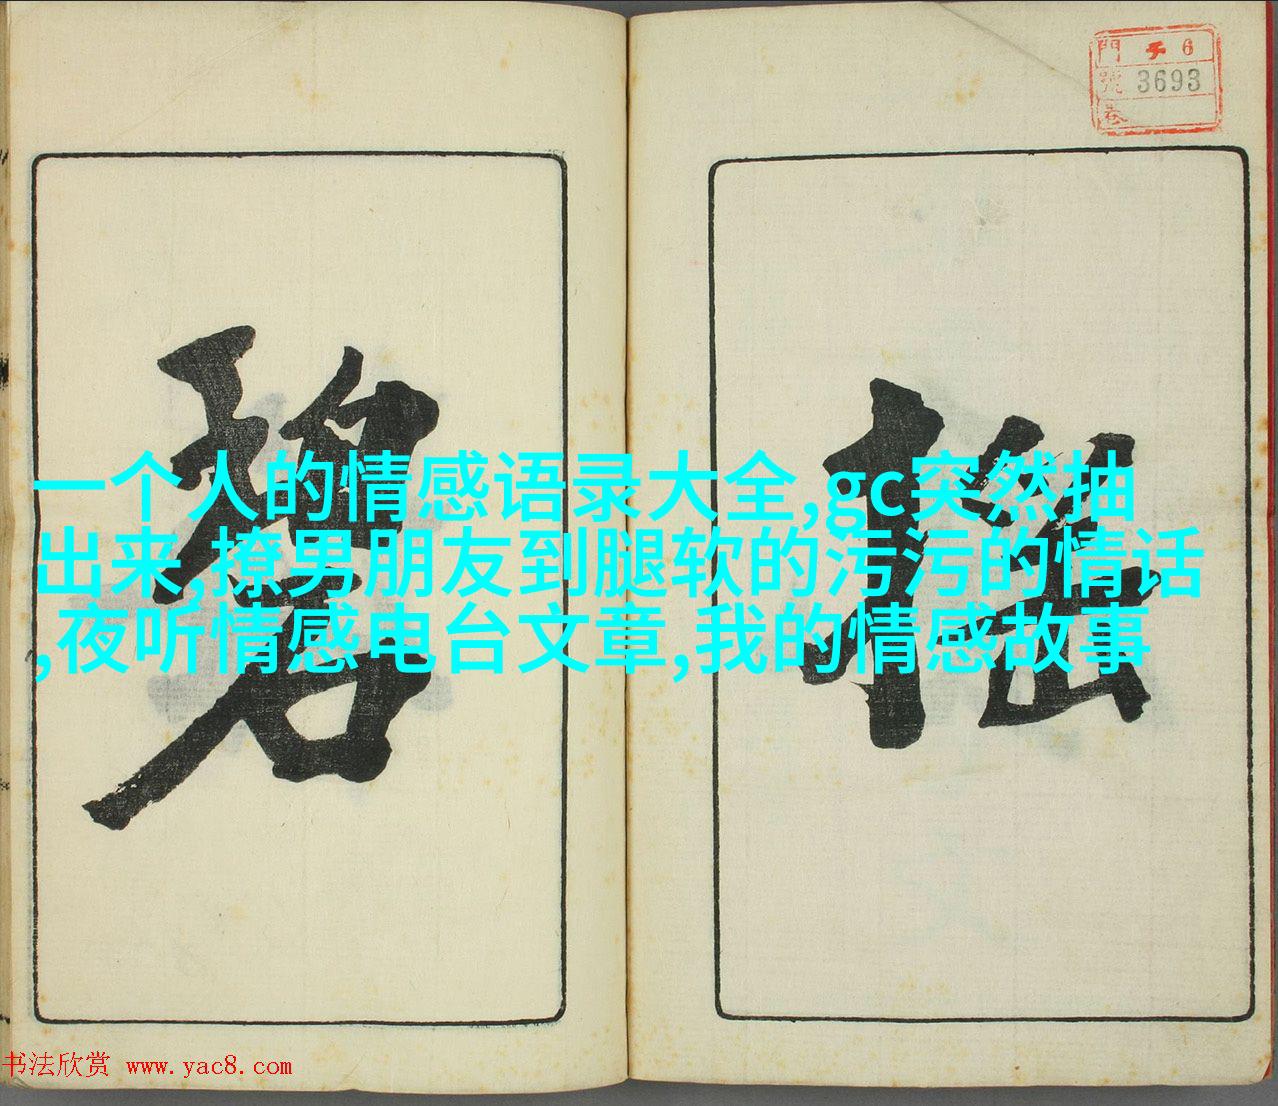 門 子 6
號 3693
卷
碧
一个人的情感语录大全,gc突然抽
出来,撩男朋友到腿软的污污的情话
,夜听情感电台文章,我的情感故事
书法欣赏 www.yac8.com